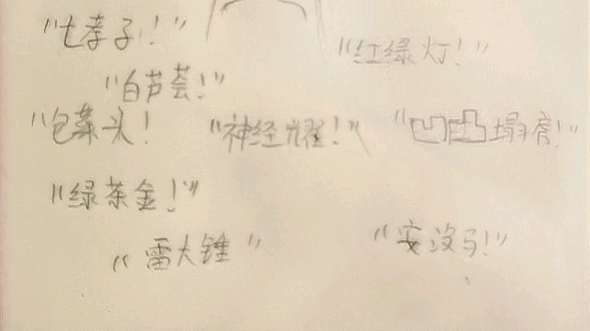 "七孝子!"
"红绿灯!"
"白芦荟!"
"包菜头!
"神经耀!"
"凹凸塌房!"
"绿茶金!"
"雷大锤"
"安没马!"